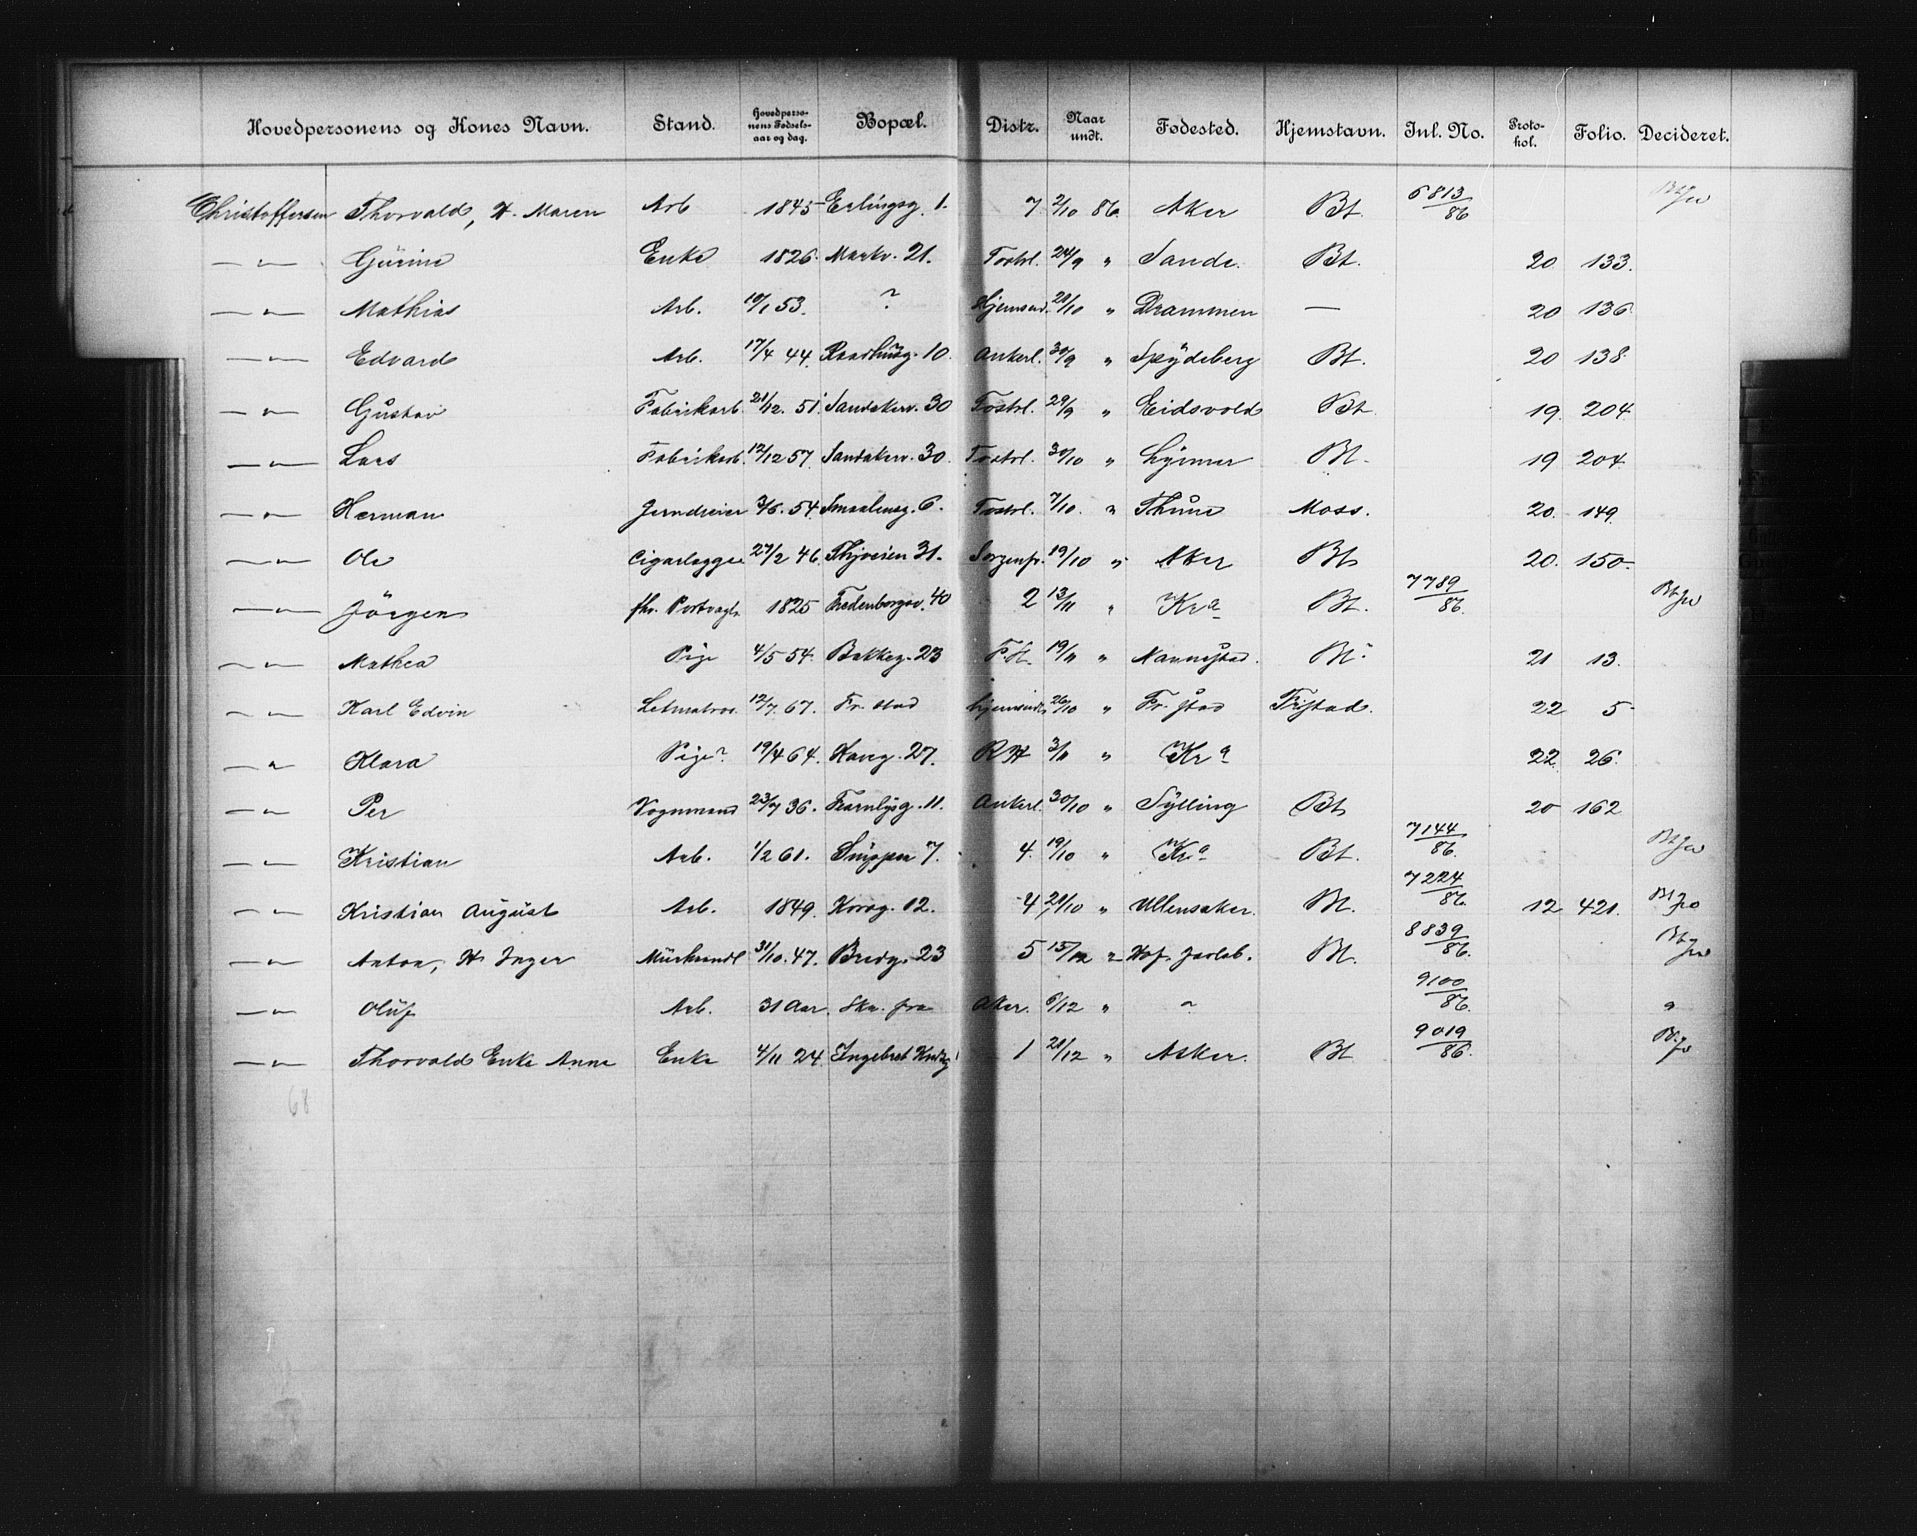 Hovedpersonens og Kones Navn. Stand. Hovedpersonens Fødselsaar og dag. Bopæl. Distr. Naar undt. Fødested. Hjemstavn. Inl. No. Protokol. Folio. Decideret.
Christoffersen Thorvald, H. Maren Arb 1845 Erlingsg. 1. 7 2/10 86 Aker Bt. 6813/86
— " — Gurine Enke 1826. Markv. 21. Tostrl. 24/9 " Sande. Bt. 20 133.
— " — Mathias Arb. 10/1 53. ? Hjemsend. 20/10 " Drammen — 20 136
— " — Edvard Arb. 17/4 44. Raadhusg. 10. Ankerl. 30/9 " Spydeberg Bt. 20 138
— " — Gustav Fabrikarb. 21/12. 51 Sandakerv. 30 Tostrl. 29/9 " Eidsvold Bt 19. 204.
— " — Lars Fabrikarb. 12/12 57. Sandakerv. 30. Tostrl. 30/10 " Bt. 19 204
— " — Herman Jerndreier 3/6. 54. Smaalensg. 6. Tostrl. 7/10. " Thune Moss. 20. 149.
— " — Ole Cigarlægger 27/2 46. Thjveien 31. Sorgenfr. 19/10 " Aker Bt 20. 150.
— " — Jörgen fhv. Portvagt. 1825 Fredenborgsv. 40 2 13/11 " Kra Bt. 7789/86
— " — Mathea Pige 4/5 54. Bakkeg. 23 F.H. 19/11 " Nannestad. Bt. 21 13.
— " — Karl Edvin Letmatros. 12/7. 67. Fr. stad hjemsendt 26/10 " Fr. stad Frstad. 22 5
— " — Klara Pige? 19/4 64. Haveg. 27. RH 3/11 " Kra 22 26.
— " — Per Vognmand 23/7 36. Fearnlysg. 11. Ankerl. 30/10 " Sylling Bt 20 162
— " — Kristian Arb. 1/2 61. Snippen 7. 4. 19/10 " Kra Bt. 7144/86.
— " — Kristian August Arb. 1849. Korsg. 12. 4 21/10 " Ullensaker. Bt. 7224/86. 12 421.
— " — Anton, H. Inger Murhandl 31/10. 47. Bredg. 23 5 15/12 " Hof. Jarlsb. Bt. 8839/86.
— " — Oluf Arb. 31 Aar. Skr. fra Aker. 6/12 " " 9100/86.
— " — Thorvald Enke Anne Enke 4/11 24. Ingebret 1 21/12 " Asker. Bt 9019/86.
68